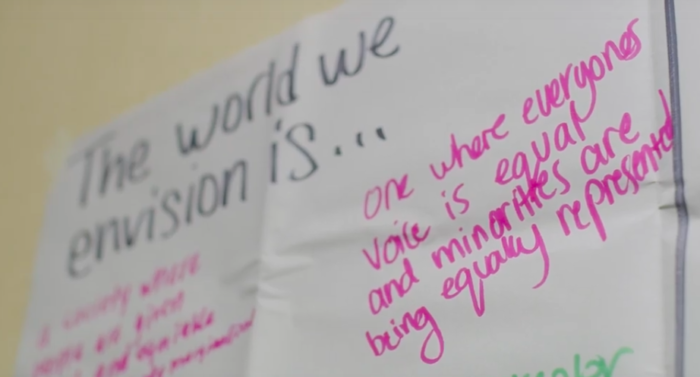 The world we
envision is...
one where everyones
voice is equal
and minorities are
being equally represented
a society where
people are given
and equitable